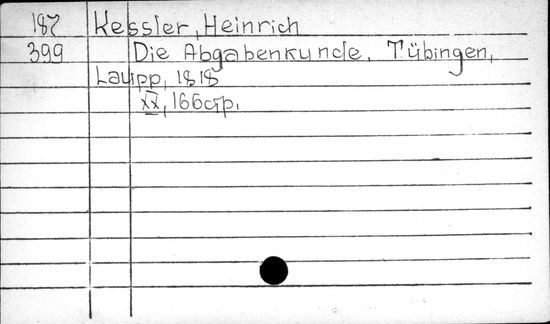 187 Kessler, Heinrich
399 Die Abgabenkunde. Tübingen,
Laupp, 1818
XX, 166 стр.